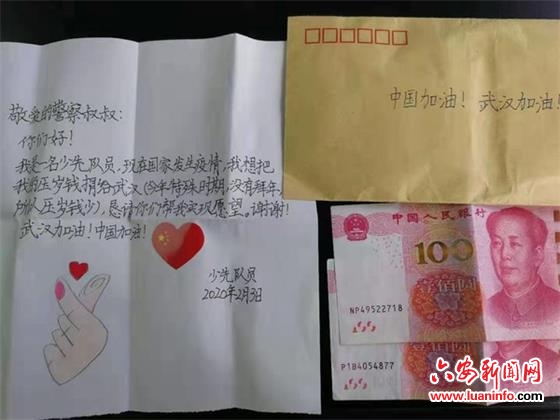 敬爱的警察叔叔:
你们好!
我是一名少先队员,现在国家发生疫情,我想把
我的压岁钱捐给武汉(今年特殊时期,没有拜年,
所以压岁钱少),恳请你们帮我实现愿望。谢谢!
武汉加油!中国加油!
少先队员
2020年2月3日
中国加油! 武汉加油!
中国人民银行
100
壹佰圆
NP49522718
P1B4054877
壹佰圆
六安新闻网
www.luaninfo.com